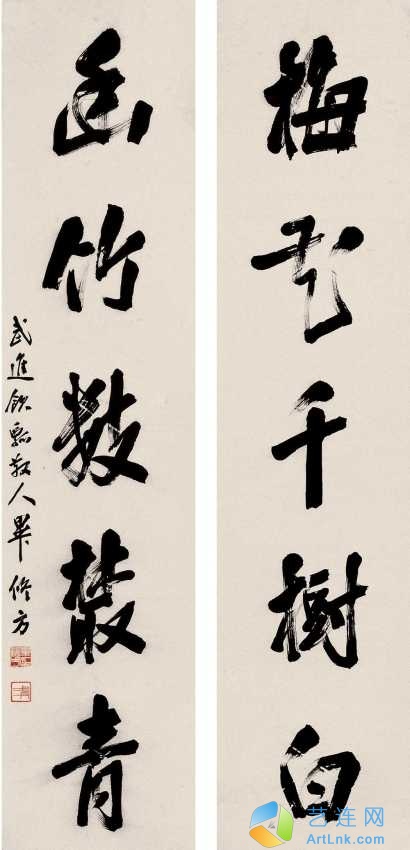 梅花千樹白
幽竹數叢青
武進飲瓢散人畢修方
艺连网
ArtLnk.com